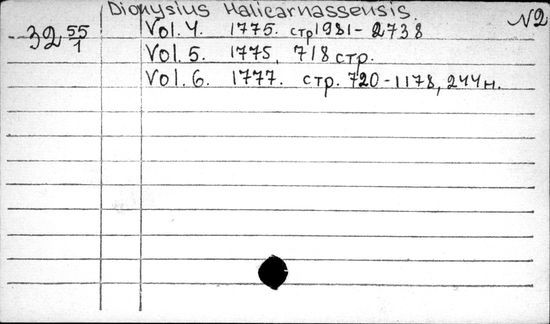 Dionysius Halicarnassensis. N2
32 55/1 Vol. 4. 1775. стр 1981-2738
Vol. 5. 1775, 718 стр.
Vol. 6. 1777. стр. 720-1178, 244 н.